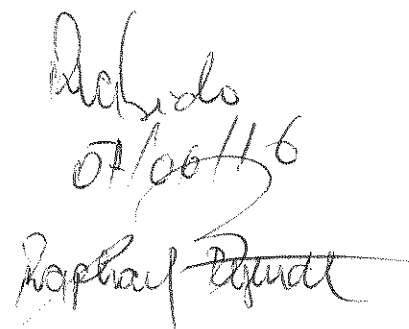 Recebido
07/06/16
Raphael